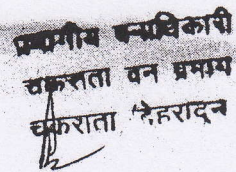 प्रभागीय वनाधिकारी
चकराता वन प्रभाग
चकराता देहरादून